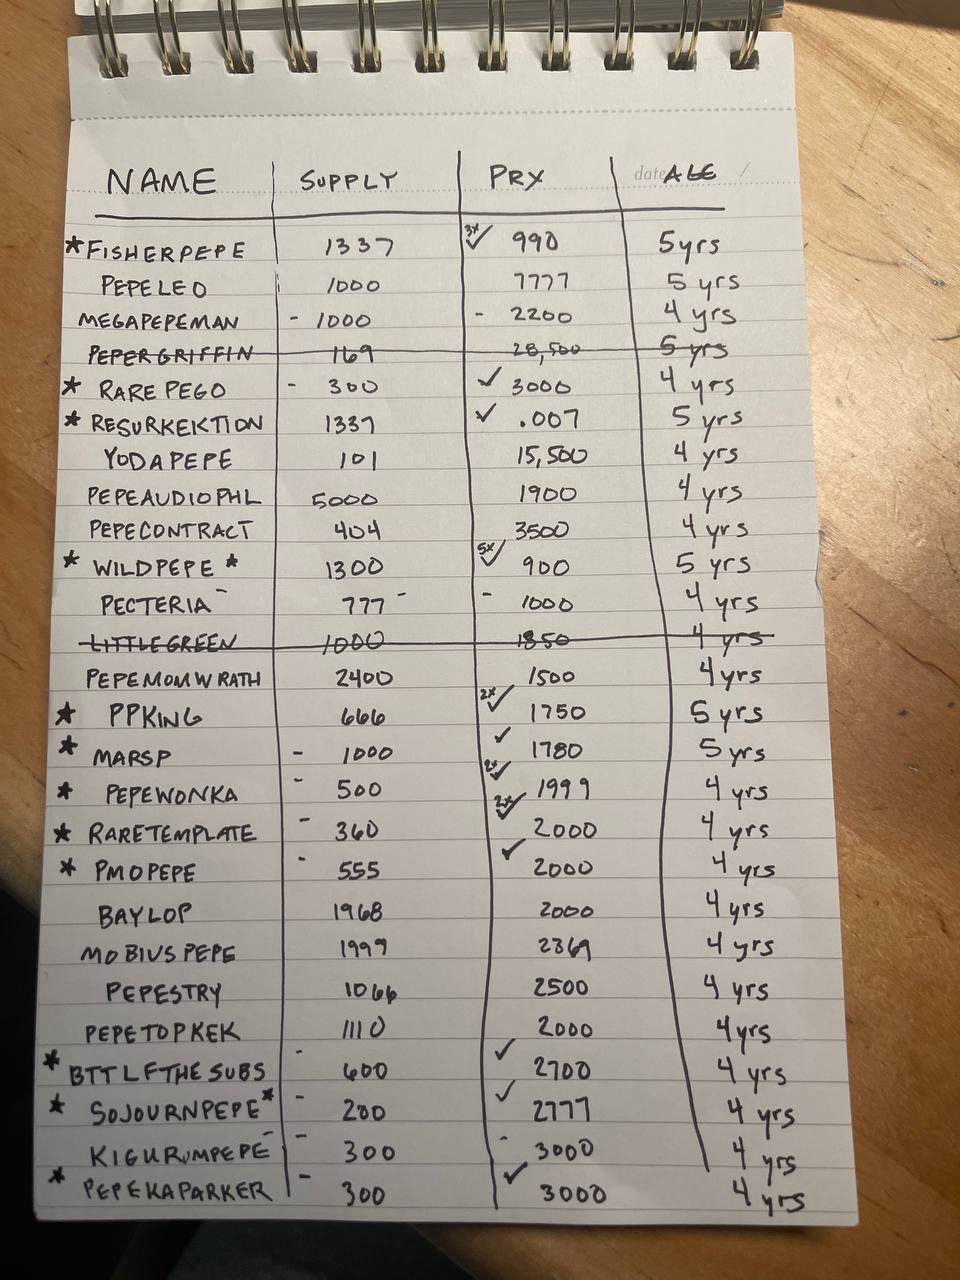 NAME SUPPLY PRX date AGE /
*FISHERPEPE 1337 3x ✓ 990 5yrs
PEPELEO 1000 7777 5 yrs
MEGAPEPEMAN - 1000 - 2200 4 yrs
PEPERGRIFFIN 169 28,500 5 yrs
* RAREPEGO - 300 ✓ 3000 4 yrs
* RESURKEKTION 1337 ✓ .007 5 yrs
YODAPEPE 101 15,500 4 yrs
PEPEAUDIOPHL 5000 1900 4 yrs
PEPECONTRACT 404 3500 4 yrs
* WILDPEPE * 1300 5x ✓ 900 5 yrs
PECTERIA - 777 - - 1000 4 yrs
LITTLEGREEN 1000 1850 4 yrs
PEPEMOMWRATH 2400 1500 4yrs
* PPKING 666 2x ✓ 1750 5 yrs
* MARSP - 1000 ✓ 1780 5 yrs
* PEPEWONKA - 500 2x ✓ 1999 4 yrs
* RARETEMPLATE - 360 2x ✓ 2000 4 yrs
* PMOPEPE - 555 ✓ 2000 4 yrs
BAYLOP 1968 2000 4 yrs
MOBIUSPEPE 1999 2369 4 yrs
PEPESTRY 1066 2500 4 yrs
PEPETOPKEK 1110 2000 4yrs
* BTTLFTHESUBS - 600 ✓ 2700 4 yrs
* SOJOURNPEPE* - 200 ✓ 2777 4 yrs
KIGURUMPEPE - - 300 - 3000 4 yrs
* PEPEKAPARKER - 300 ✓ 3000 4 yrs